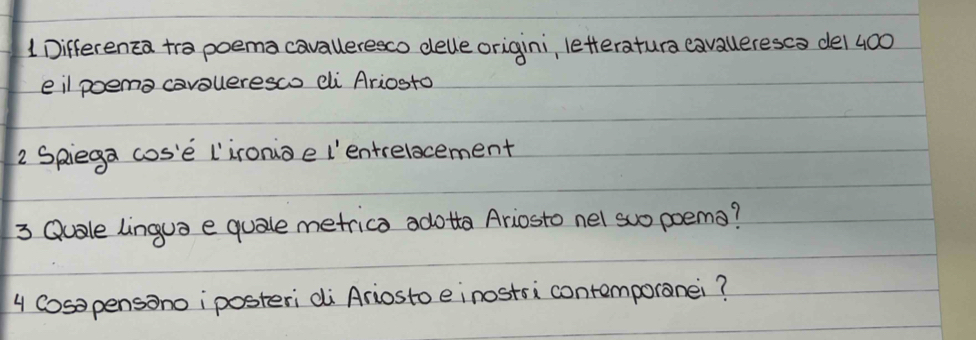 1 Differenza tra poema cavalleresco delle origini, letteratura cavalleresca del 400
e il poema cavalleresco di Ariosto
2 Spiega cos'é l'ironia e l'entrelacement
3 Quale lingua e quale metrica adotta Ariosto nel suo poema?
4 Cosa pensano i posteri di Ariosto e i nostri contemporanei?